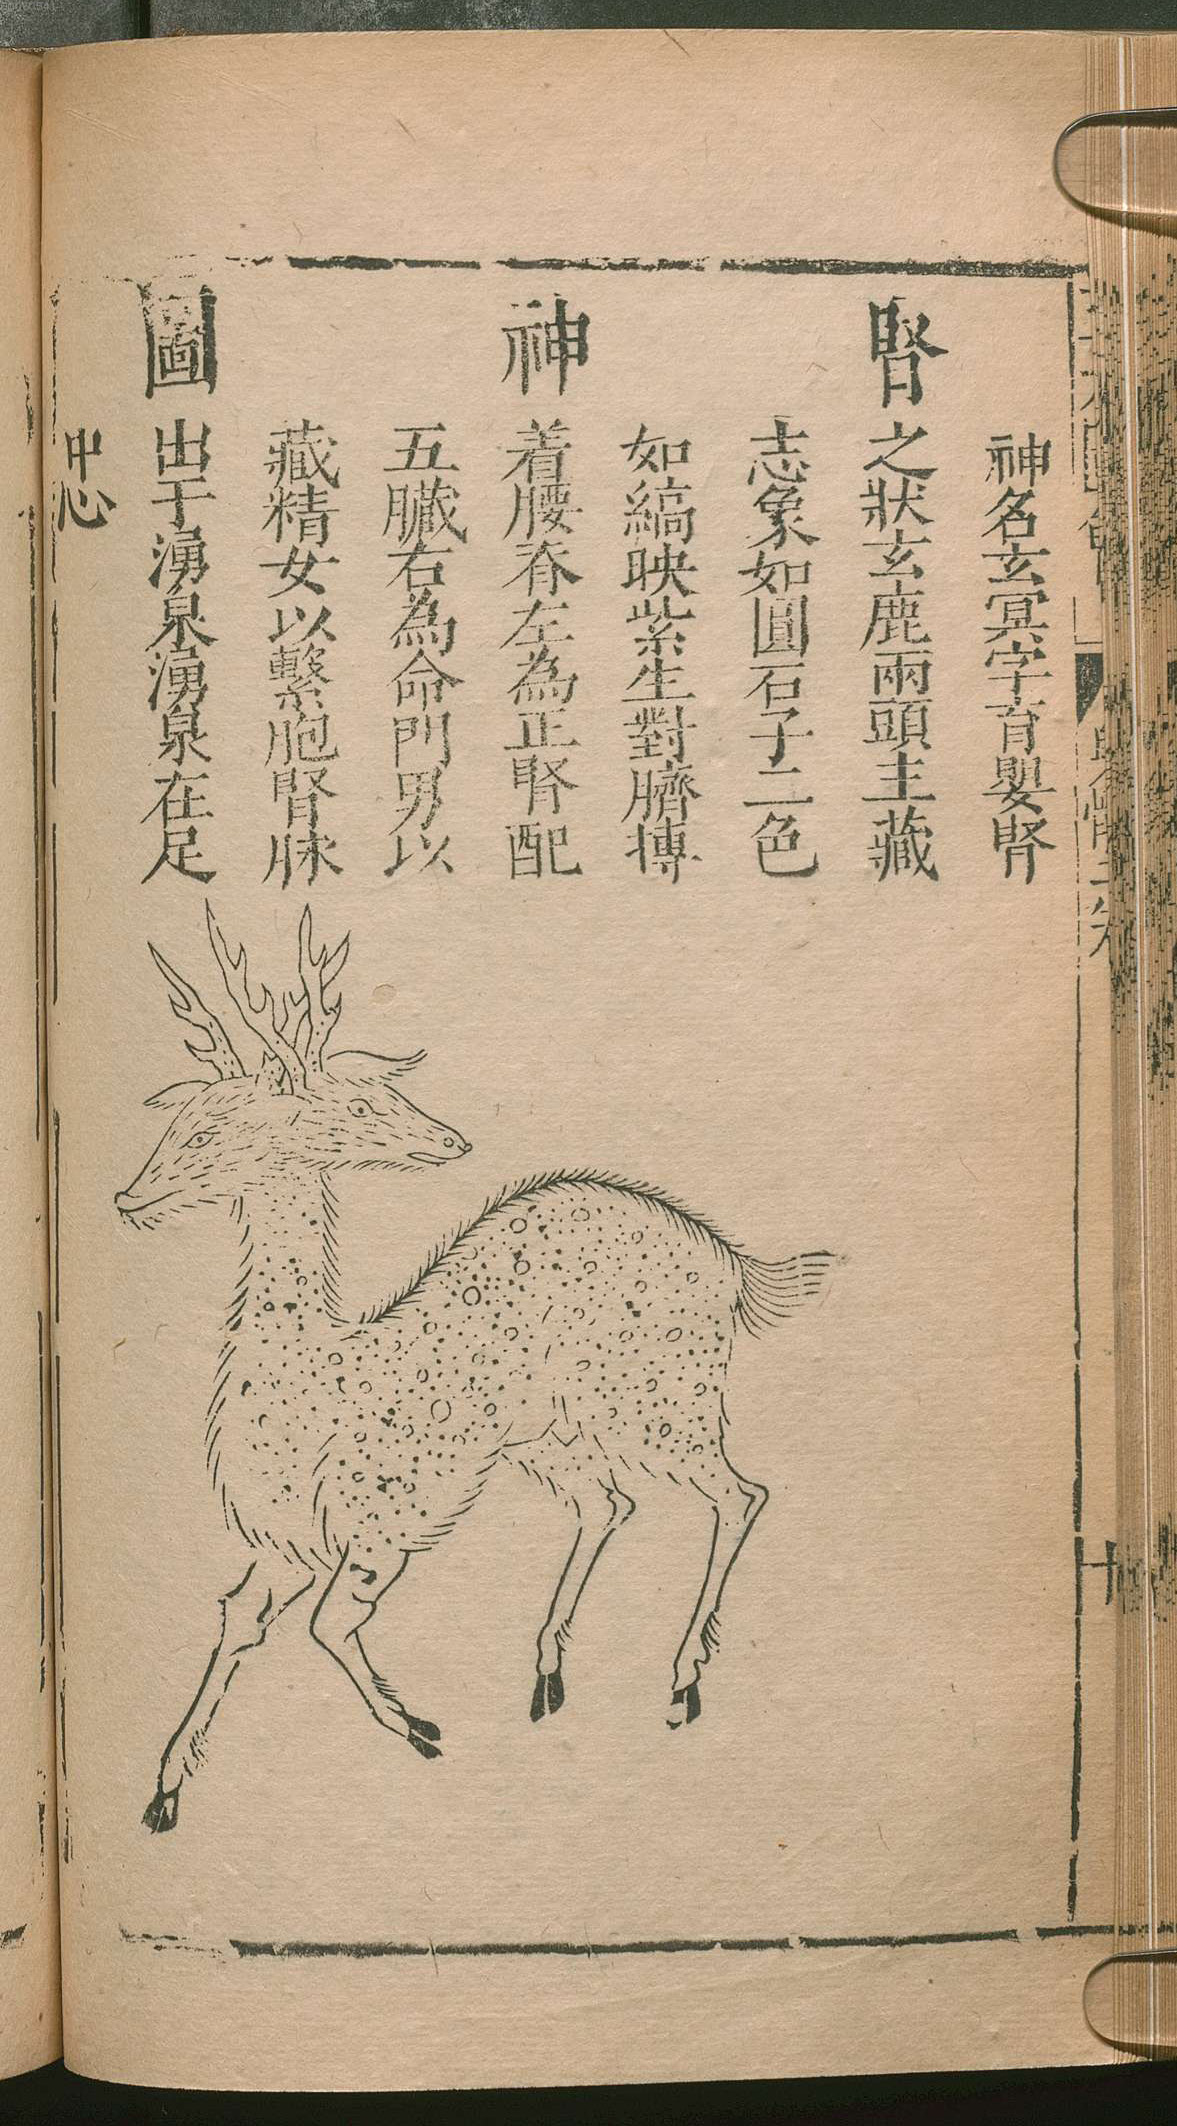 腎神圖
神名玄冥字育嬰腎
之狀玄鹿兩頭主藏
志象如圓石子二色
如縞映紫生對臍摶
着腰脊左為正腎配
五臟右為命門男以
藏精女以繫胞腎脉
出于湧泉湧泉在足
中心